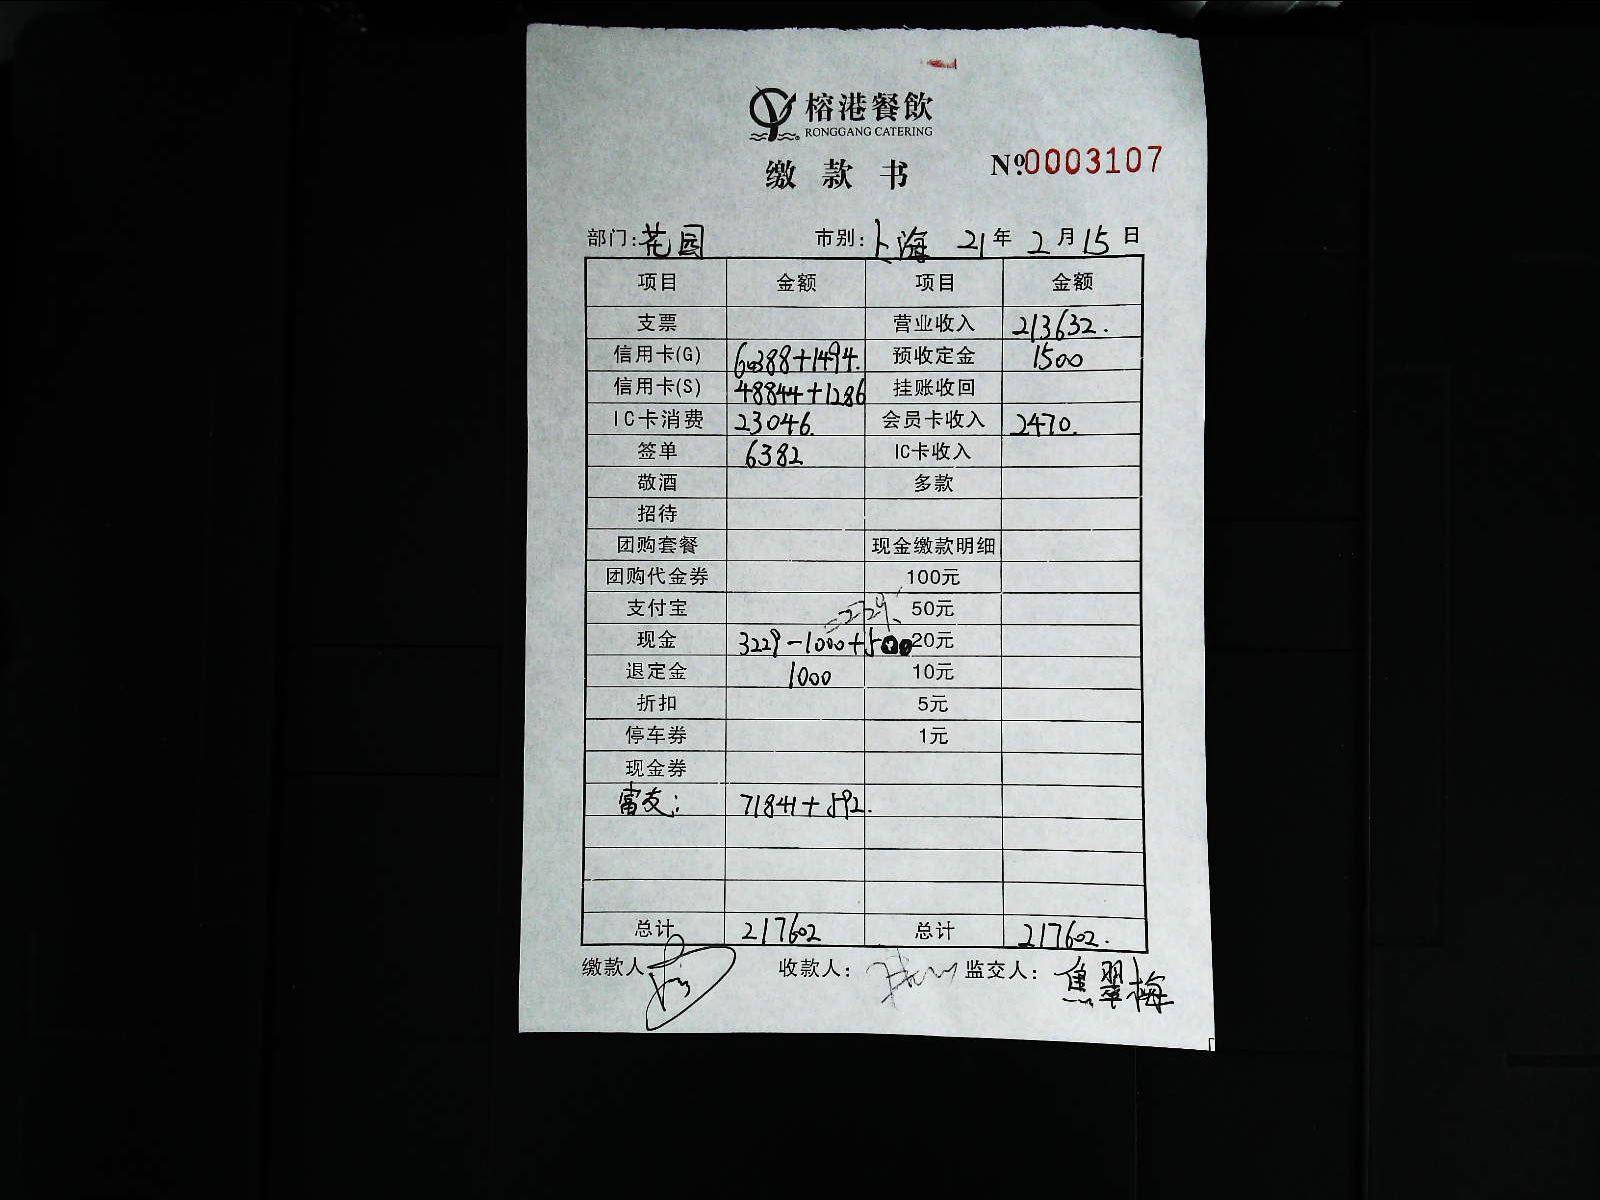 榕港餐飲
RONGGANG CATERING
缴款书
№0003107
部门:花园 市别:上海 21年2月15日
项目 金额 项目 金额
支票 营业收入 213632.
信用卡(G) 60388+1494. 预收定金 1500
信用卡(S) 48844+1286 挂账收回
IC卡消费 23046. 会员卡收入 2470.
签单 6382 IC卡收入
敬酒 多款
招待
团购套餐 现金缴款明细
团购代金券 100元
支付宝 =2729. 50元
现金 3229-1000+500 20元
退定金 1000 10元
折扣 5元
停车券 1元
现金券
富友: 71841+592.
总计 217602 总计 217602.
缴款人 收款人: 监交人: 焦翠梅